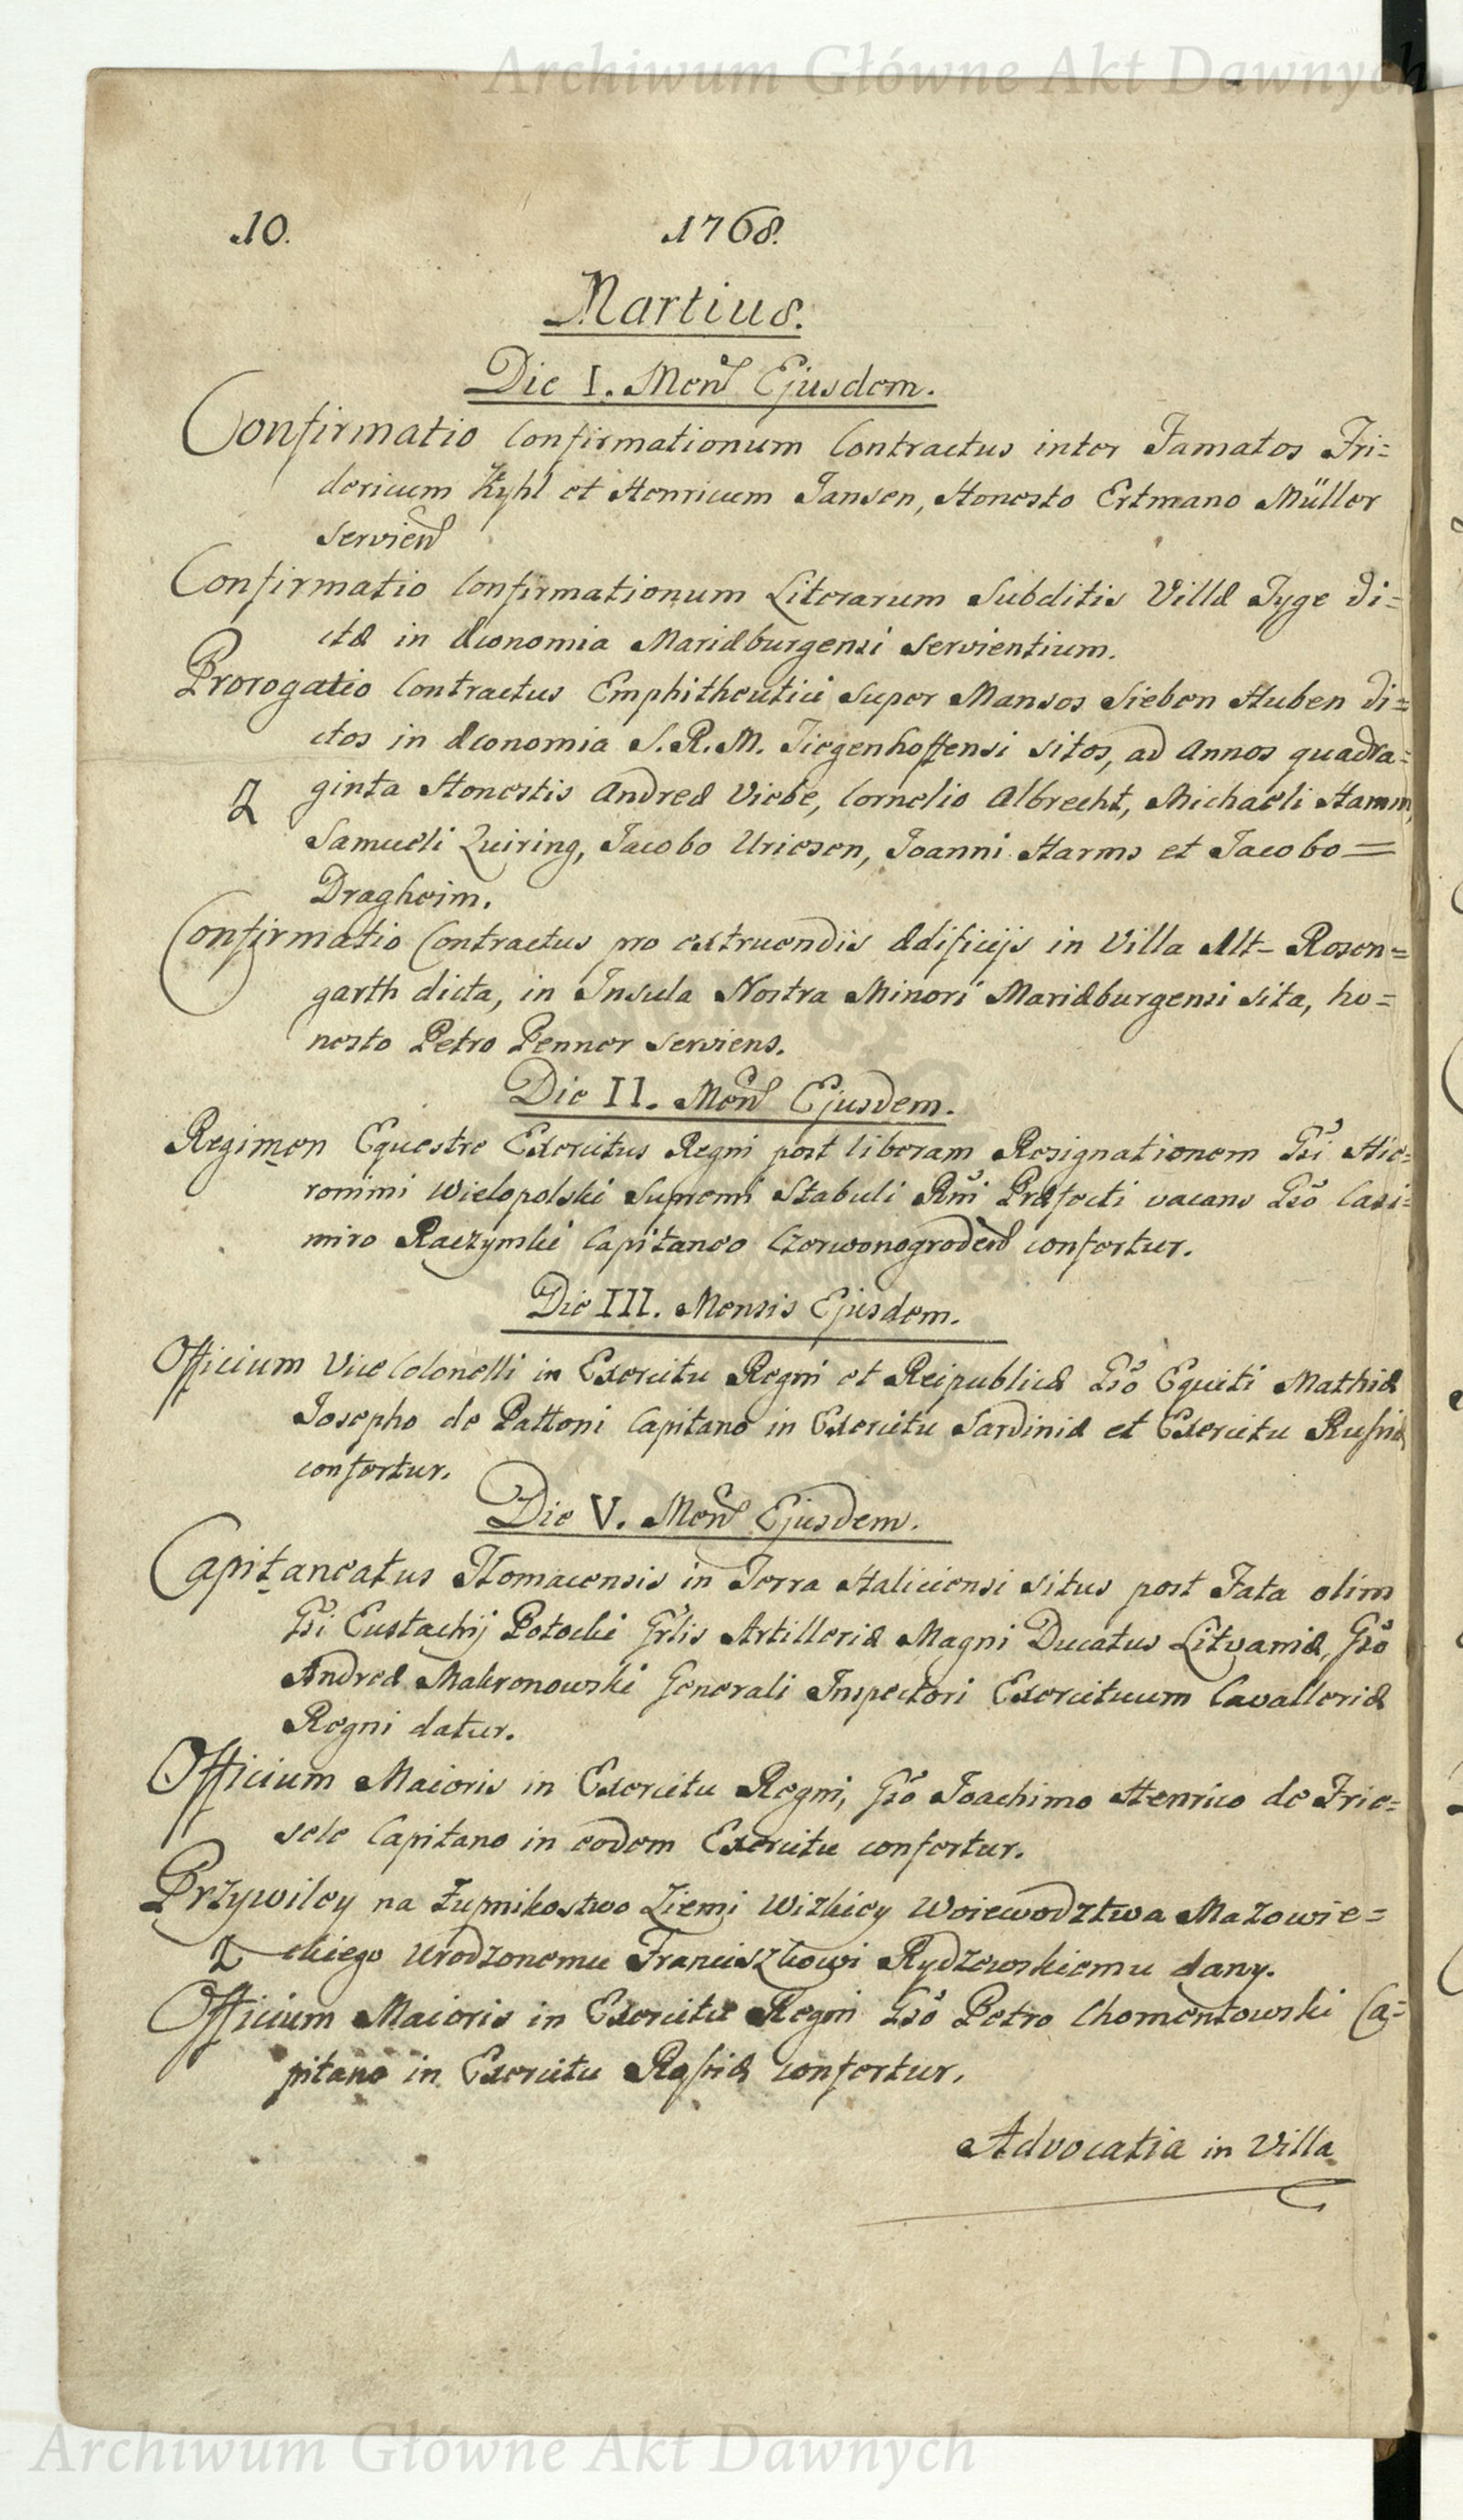 Archiwum Główne Akt Dawnych
10. 1768.
Martius.
Die I. Mens Ejusdem.
Confirmatio Confirmationum Contractus inter Famatos Fri=
dericum Kyhl et Henricum Jansen, Honesto Ertmano Müller
servien
Confirmatio Confirmationum Literarum Subditis Villæ Tyge di=
ctæ in Æconomia Mariæburgensi servientium.
Prorogatio Contractus Emphitheutici super Mansos Sieben Huben di=
ctos in Æconomia S. R. M. Tiegenhoffensi sitos, ad Annos quadra=
ginta Honestis Andreæ Viebe, Cornelio Albrecht, Michaeli Hamm,
Samueli Quiring, Jacobo Uriesen, Joanni Harms et Jacobo =
Dragheim.
Confirmatio Contractus pro extruendis Ædificijs in Villa Alt- Rosen=
garth dicta, in Insula Nostra Minori Mariæburgensi sita, ho=
nesto Petro Penner serviens.
Die II. Mens Ejusdem.
Regimen Equestre Exercitus Regni post liberam Resignationem Gsi Hie=
ronimi Wielopolski Supremi Stabuli Rni Præfecti vacans Gso Casi=
miro Raczynski Capitaneo Czerwonogroden confertur.
Die III. Mensis Ejusdem.
Officium Vice Colonelli in Exercitu Regni et Reipublicæ Gso Equiti Mathiæ
Josepho de Pattoni Capitano in Exercitu Sardiniæ et Exercitu Russiæ
confertur.
Die V. Mens Ejusdem.
Capitaneatus Tlomacensis in Terra Haliciensi situs post Fata olim
Gsi Eustachij Potocki Grlis Artilleriæ Magni Ducatus Litvaniæ, Gso
Andreæ Mokronowski Generali Inspectori Exercituum Cavalleriæ
Regni datur.
Officium Maioris in Exercitu Regni, Gso Joachimo Henrico de Frie=
sele Capitano in eodem Exercitu confertur.
Przywiley na Łupnikostwo Ziemi Wizkiey Woiewodztwa Mazowie=
ckiego Urodzonemu Franciszkowi Rydzewskiemu dany.
Officium Maioris in Exercitu Regni Gso Petro Chomentowski Ca=
pitano in Exercitu Russiæ confertur.
Advocatia in Villa
Archiwum Główne Akt Dawnych